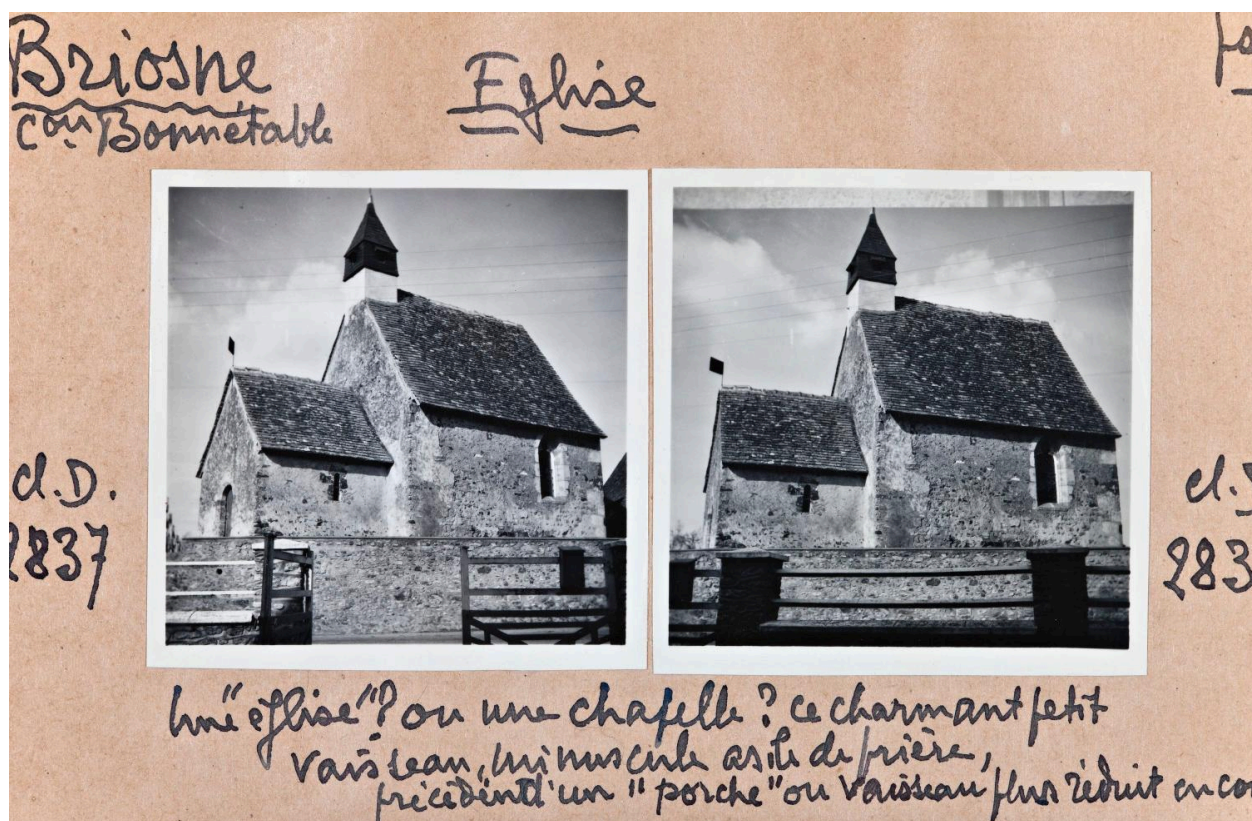 Briosne
Eglise
con Bonnétable
cl. D.
2837
cl.
283
Une "église"? ou une chapelle? ce charmant petit
vaisseau, minuscule asile de prière,
précédé d'un "porche" ou vaisseau plus réduit enco